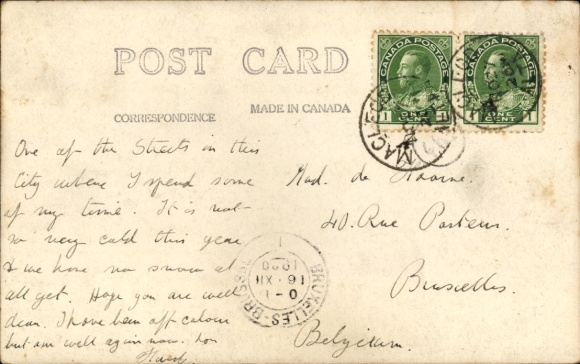 POST CARD
CORRESPONDENCE
MADE IN CANADA
CANADA POSTAGE
1 ONE CENT 1
CANADA POSTAGE
1 ONE CENT 1
MACLEOD
One of the Streets in this
City where I spend some
of my time. It is not
so very cold this year
& we have no snow at
all yet. Hope you are well
dear. I have been off colour
but am well again now.
Mad. de
40. Rue Pasteur.
Bruxelles.
Belgium.
BRUXELLES-BRUSSEL
1
16·XII